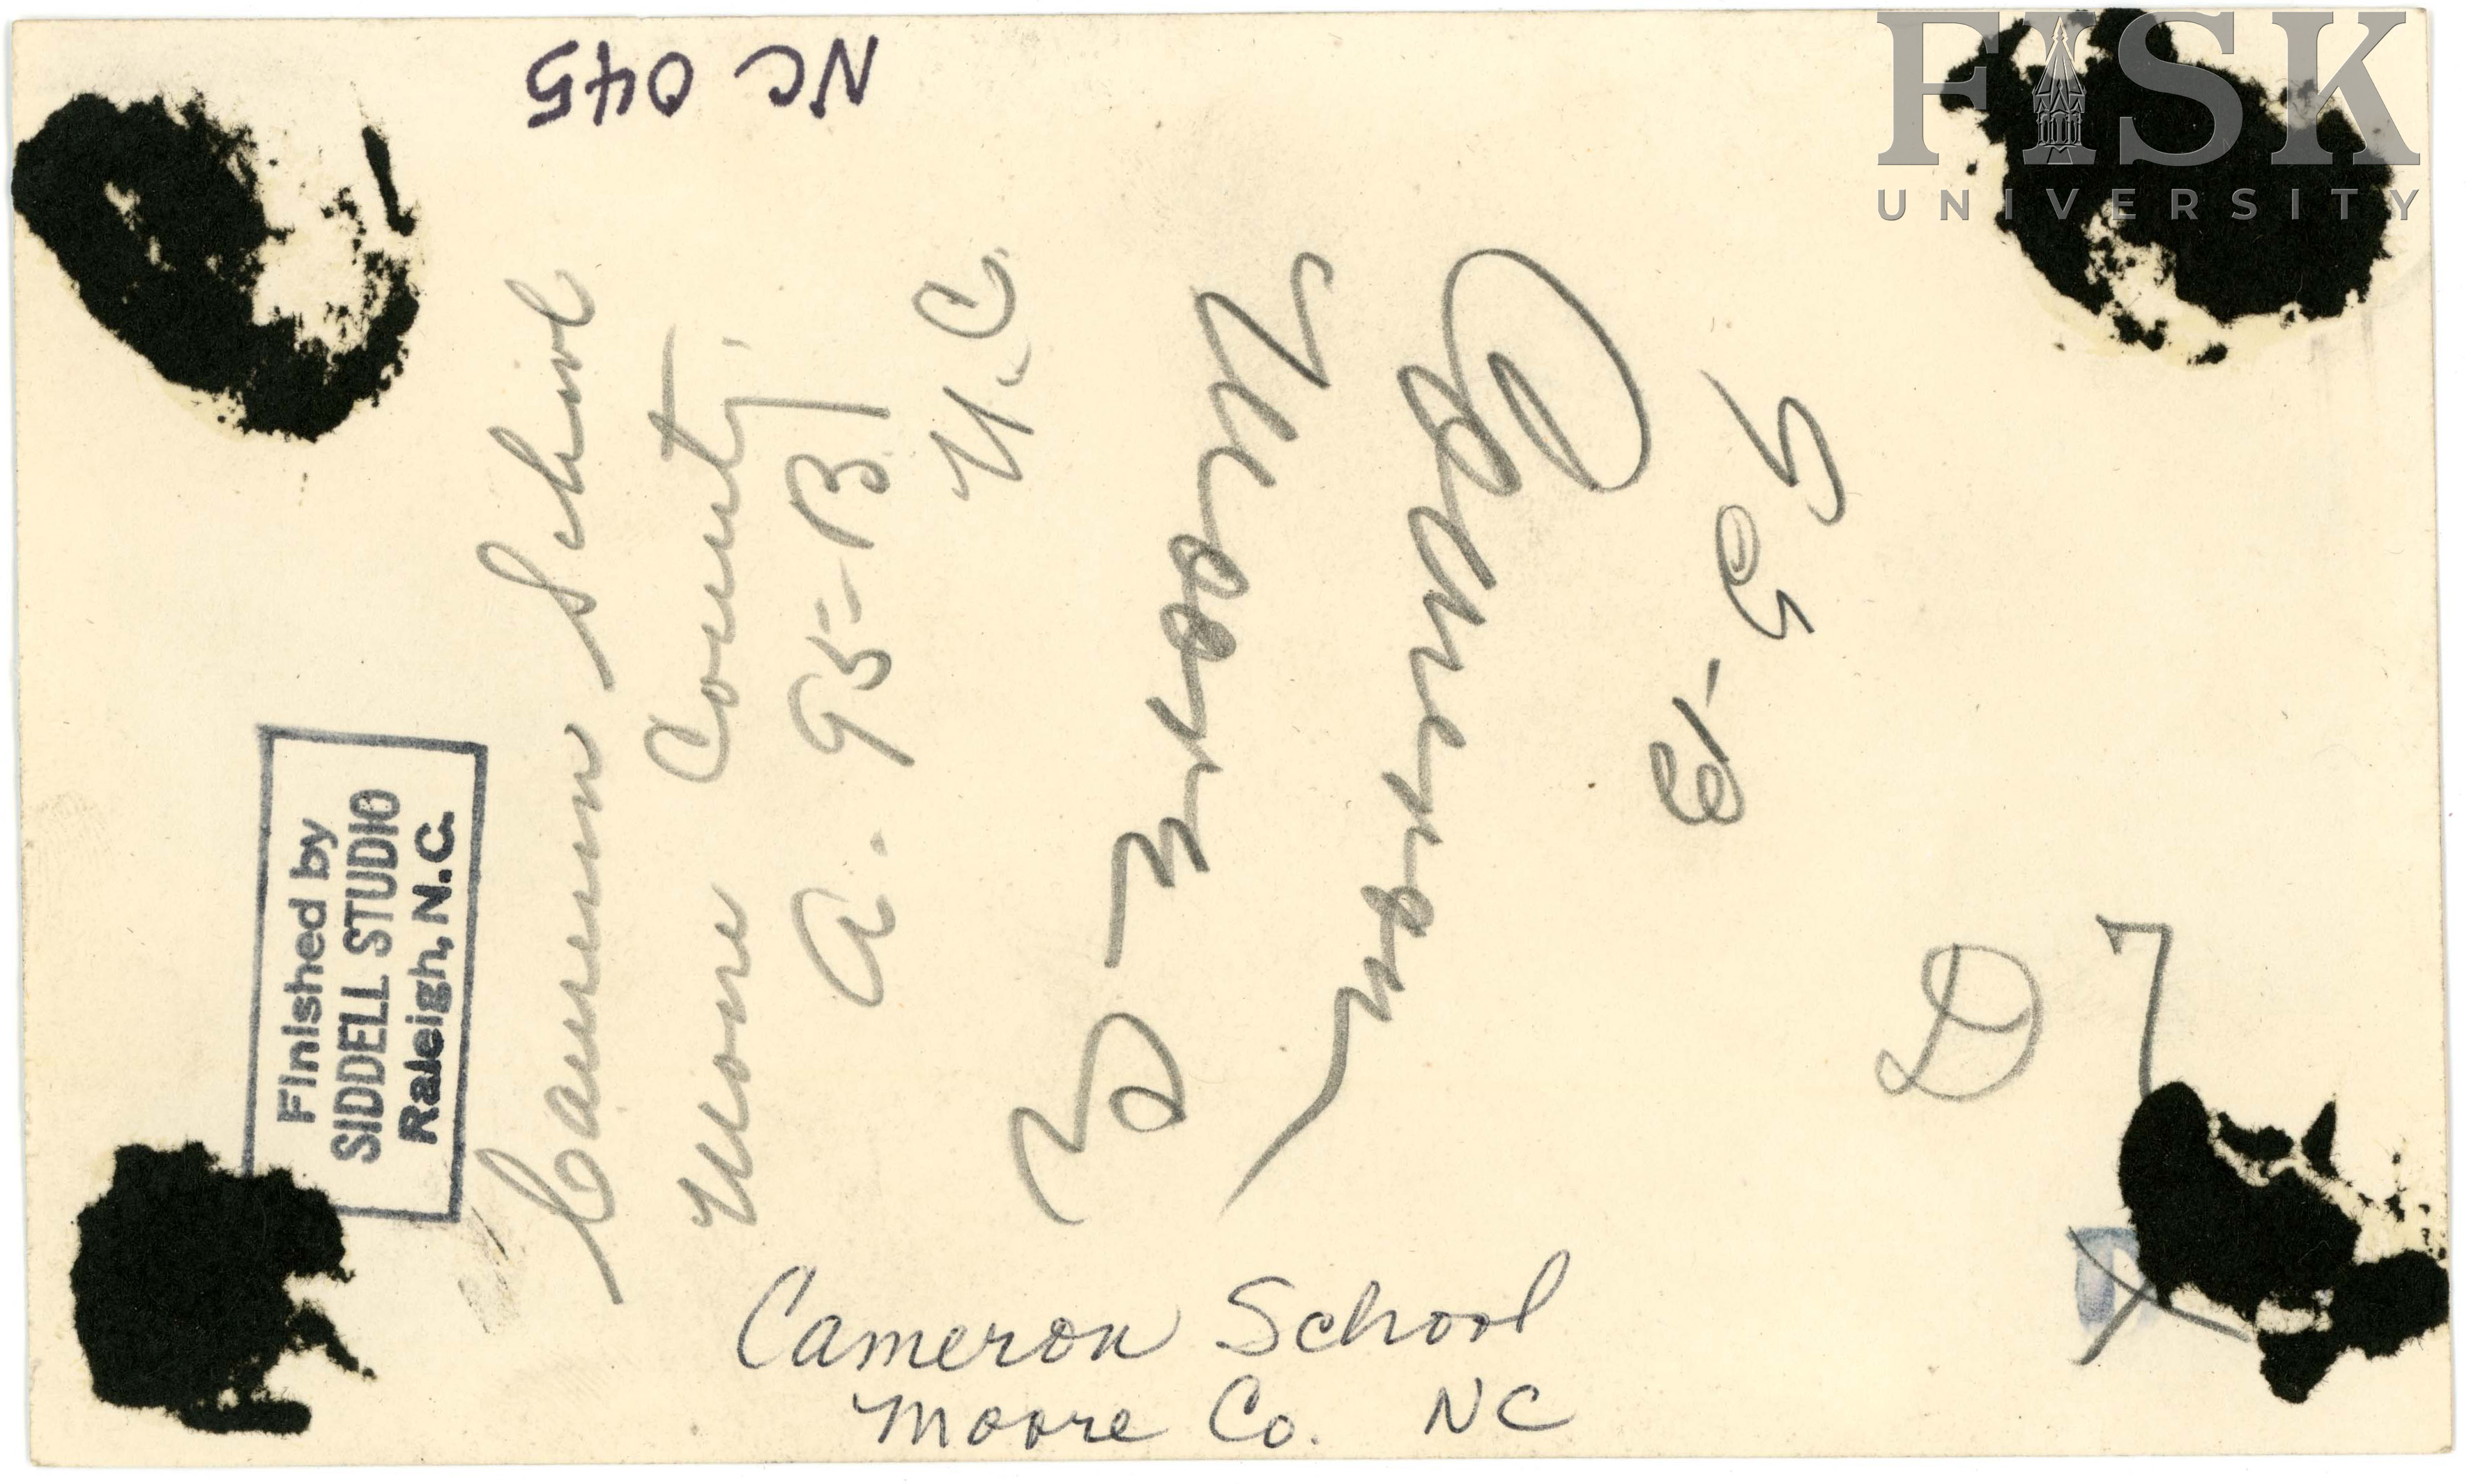 NC 045
FISK
UNIVERSITY
Finished by
SIDDELL STUDIO
Raleigh, N.C.
Cameron School
Moore County,
A. 95-B
N.C.
Cameron
Moore
95-B
D
7
Cameron School
Moore Co. NC